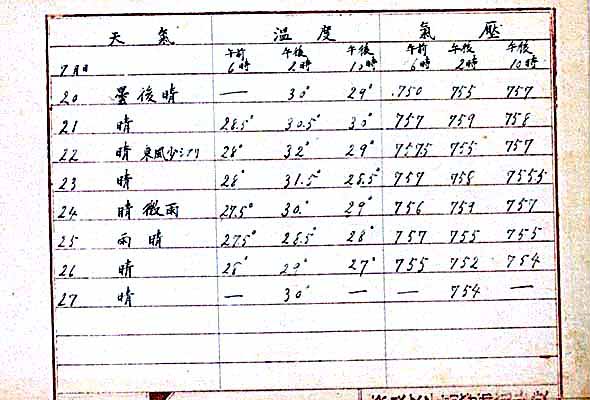 天氣 溫度 氣壓
7月日 午前6時 午後2時 午後10時 午前6時 午後2時 午後10時
20 曇後晴 — 30° 29° .750 755 757
21 晴 28.5° 30.5° 30° 757 759 758
22 晴 東風少シアリ 28° 32° 29° 7575 755 757
23 晴 28° 31.5° 28.5° 757 758 7555
24 晴微雨 27.5° 30° 29° 756 759 757
25 雨晴 27.5° 28.5° 28° 757 755 755
26 晴 28° 29° 27° 755 752 754
27 晴 — 30° — — 754 —